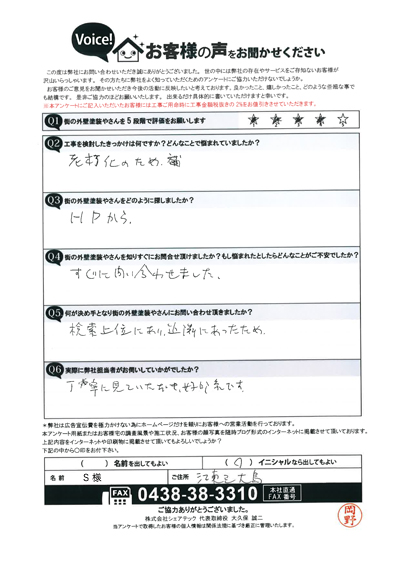 Voice!
お客様の声をお聞かせください
この度は弊社にお問い合わせいただき誠にありがとうございました。世の中には弊社の存在やサービスをご存知ないお客様が
沢山いらっしゃいます。その方たちに弊社をよく知っていただくためのアンケートにご協力いただけないでしょうか。
お客様のご意見をお聞かせいただき今後の活動に反映したいと考えております。良かったこと、嬉しかったこと、どのような些細な事で
も結構です。是非ご協力のほどお願いいたします。出来るだけ具体的に書いていただけますと幸いです。
※本アンケートにご記入いただいたお客様には工事ご用命時に工事金額税抜きの2%をお値引きさせていただきます。
Q1 街の外壁塗装やさんを5段階で評価をお願いします ★ ★ ★ ★ ☆
Q2 工事を検討したきっかけは何ですか？どんなことで悩まれていましたか？
化のため、
Q3 街の外壁塗装やさんをどのように探しましたか？
HPから、
Q4 街の外壁塗装やさんを知りすぐにお問合せ頂けましたか？もし悩まれたとしたらどんなことがご不安でしたか？
すぐに問い合わせました、
Q5 何が決め手となり街の外壁塗装やさんにお問い合わせ頂きましたか？
検索上位にあり、近隣にあったため、
Q6 実際に弊社担当者がお伺いしていかがでしたか？
丁寧に見ていただき、好印象です。
＊弊社は広告宣伝費を極力かけない為にホームページだけを頼りにお客様への営業活動を行っております。
本アンケート用紙またはお客様宅の調査風景や施工状況、お客様の顔写真を随時ブログ形式のインターネットに掲載させて頂いております。
上記内容をインターネットや印刷物に掲載させて頂いてもよろしいでしょうか？
下記の中から〇印をお付下さい。
（ ）名前を出してもよい （ ）イニシャルなら出してもよい
名前 S 様 ご住所 江東区大島
FAX 0438-38-3310 本社直通FAX番号
ご協力ありがとうございました。
株式会社シェアテック 代表取締役 大久保 誠二
当アンケートで取得したお客様の個人情報は関係法規に基づき厳正に管理いたします。
岡野